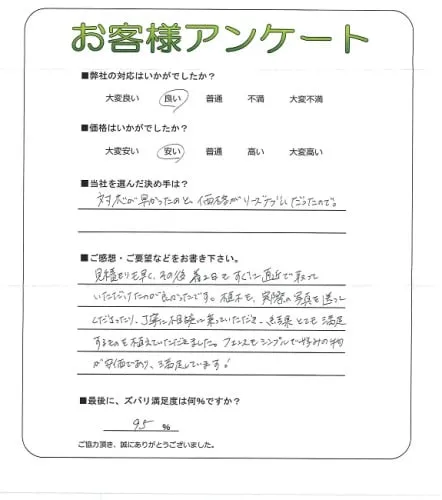 お客様アンケート
■弊社の対応はいかがでしたか？
大変良い 良い 普通 不満 大変不満
■価格はいかがでしたか？
大変安い 安い 普通 高い 大変高い
■当社を選んだ決め手は？
対応が早かったのと、価格がリーズナブルだったので。
■ご感想・ご要望などをお書き下さい。
見積もりも早く、その後着工日もすぐに直近で取って
いただけたのが良かったです。植木も、実際の写真を送って
くださったり、丁寧に相談に乗っていただき、結果とても満足
するものを植えていただきました。フェンスもシンプルで好みの物
が安価であり、満足しています！
■最後に、ズバリ満足度は何％ですか？
95 %
ご協力頂き、誠にありがとうございました。